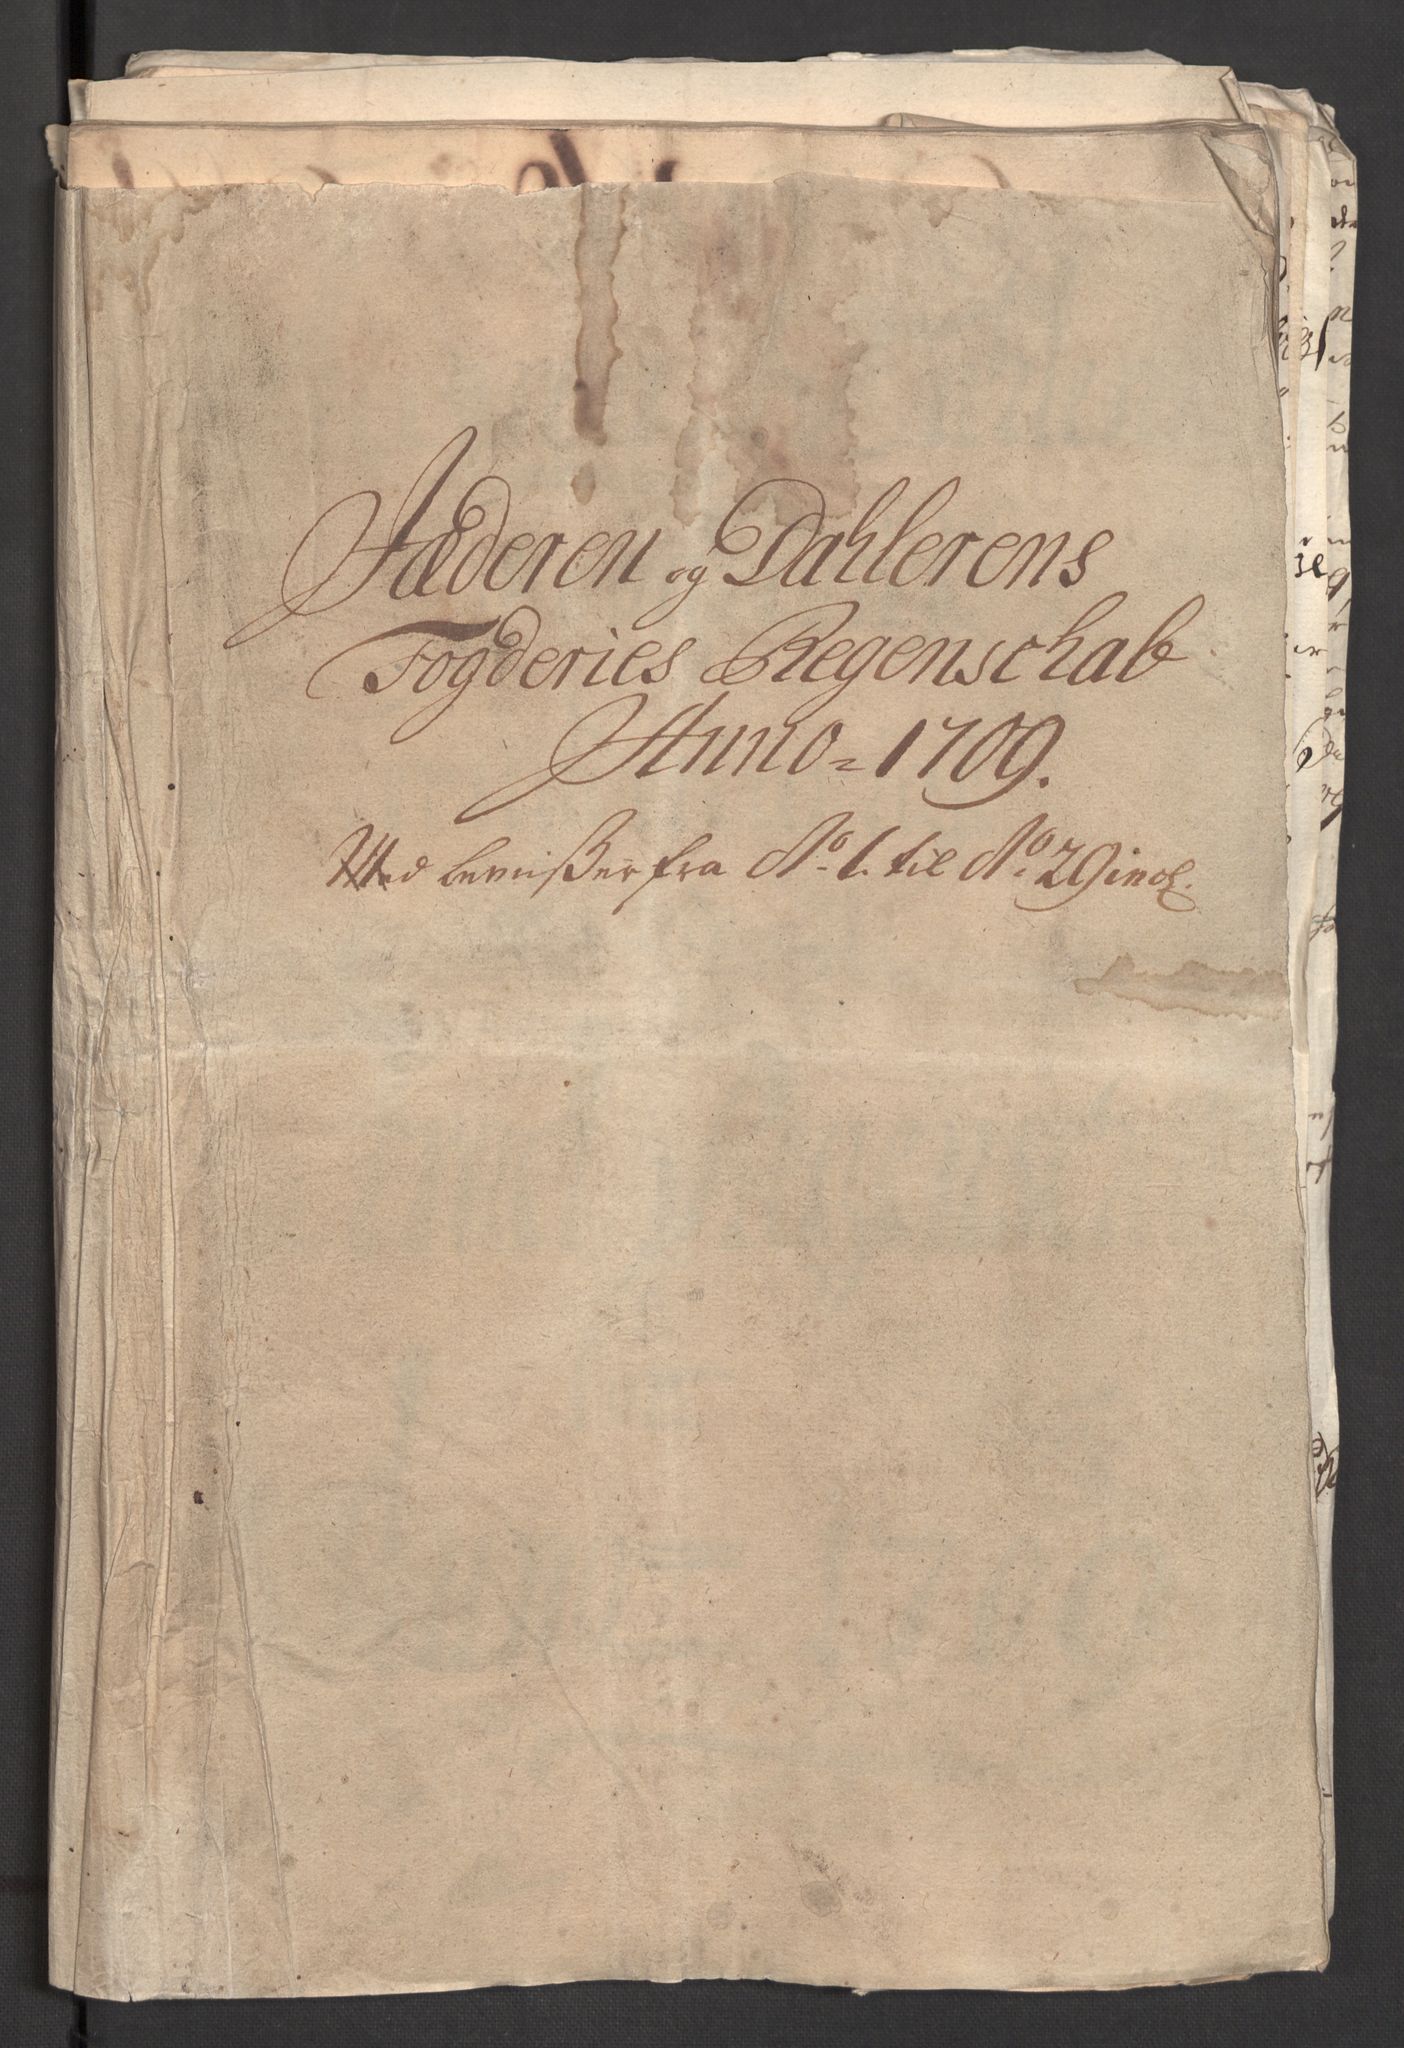 Jæderen og Dahlerens
Fogderies Regenschab
Anno = 1709.
Med beviißer fra No. 1. til No. 29 incl.